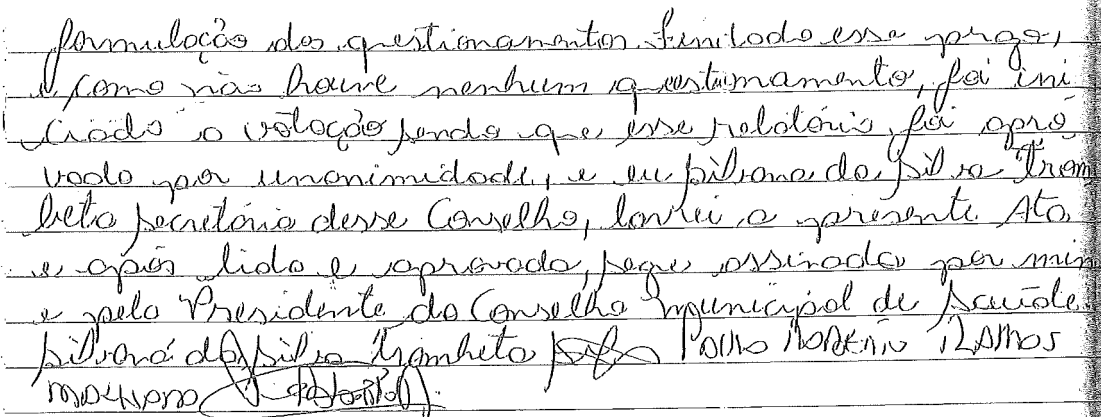 formulação dos questionamentos. Findado esse prazo,
e como não houve nenhum questionamento, foi ini
ciado a votação sendo que esse relatório, foi apro
vado por unanimidade, e eu Silvana da Silva Trom
beta secretária desse Conselho, lavrei a presente Ata
e após lida e aprovada, segue assinada por mim
e pelo Presidente do Conselho Municipal de Saúde.
Silvana da Silva Trombeta Paulo Roberto Ramos
Machado